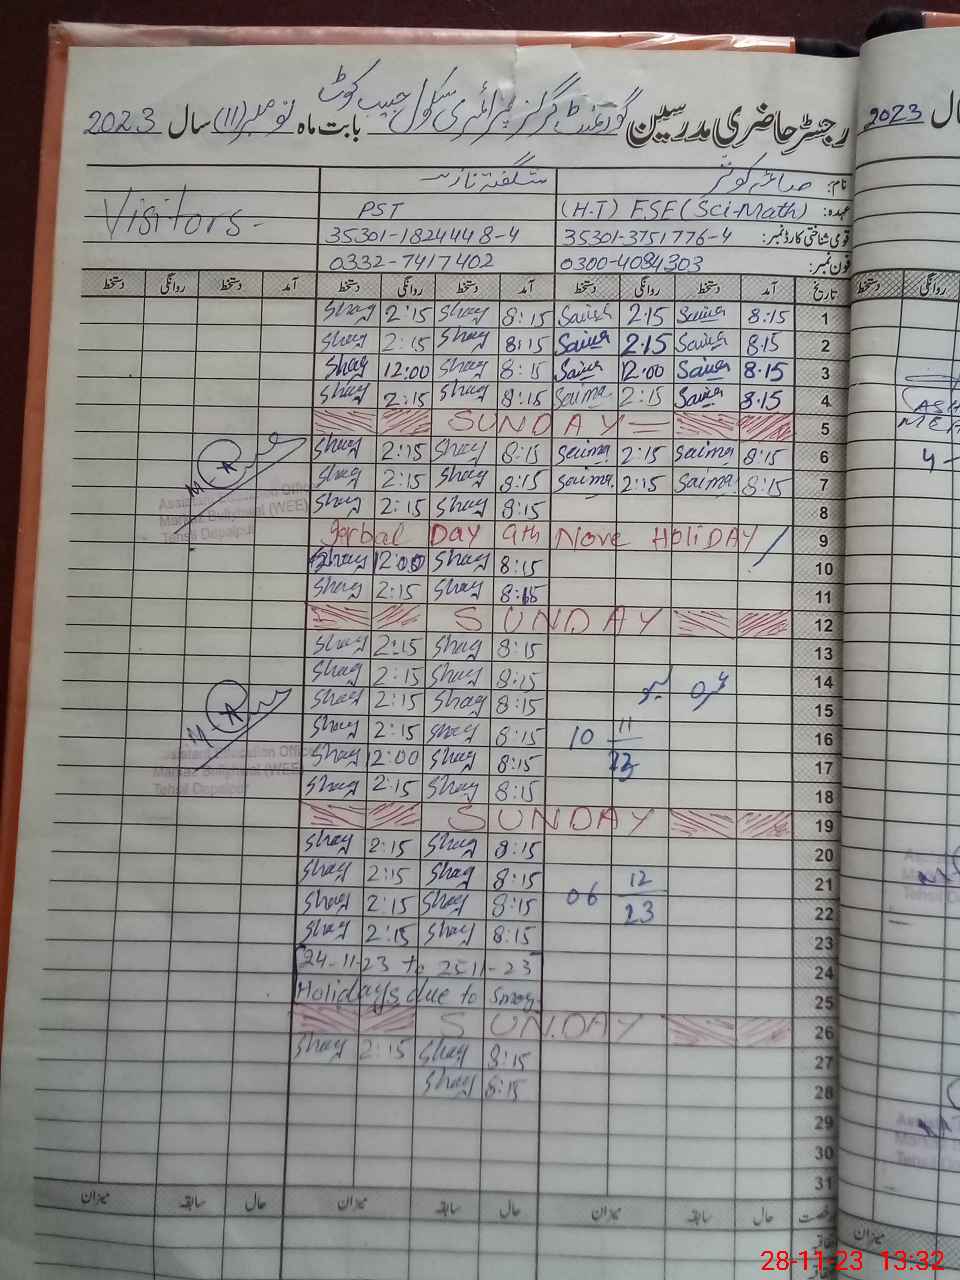 رجسٹر حاضری مدرسین گورنمنٹ گرلز پرائمری سکول حبیب کوٹ بابت ماہ نومبر (11) سال 2023
2023
نام: صائمہ کوثر شگفتہ ناز
عہدہ: (H.T) E.S.E (Sci-Math) PST Visitors-
قومی شناختی کارڈ نمبر: 35301-3751776-4 35301-1824448-4
فون نمبر: 0300-4084303 0332-7417402
تاریخ آمد دستخط روانگی دستخط آمد دستخط روانگی دستخط آمد دستخط روانگی دستخط
1 8:15 Saima 2:15 Saima 8:15 Shag 2:15 Shag
2 8:15 Saima 2:15 Saima 8:15 Shag 2:15 Shag
3 8:15 Saima 12:00 Saima 8:15 Shag 12:00 Shag
4 8:15 Saima 2:15 Saima 8:15 Shag 2:15 Shag
5 SUNDAY
6 8:15 Saima 2:15 Saima 8:15 Shag 2:15 Shag
7 8:15 Saima 2:15 Saima 8:15 Shag 2:15 Shag
8 8:15 Shag 2:15 Shag
9 Iqbal DAY 9th Nove HoliDAY
10 8:15 Shag 12:00 Shag
11 8:15 Shag 2:15 Shag
12 SUNDAY
13 8:15 Shag 2:15 Shag
14 8:15 Shag 2:15 Shag
15 8:15 Shag 2:15 Shag
16 8:15 Shag 2:15 Shag
10 11/23
17 8:15 Shag 12:00 Shag
18 8:15 Shag 2:15 Shag
19 SUNDAY
20 8:15 Shag 2:15 Shag
21 8:15 Shag 2:15 Shag
06 12/23
22 8:15 Shag 2:15 Shag
23 8:15 Shag 2:15 Shag
24 24-11-23 to 25-11-23
25 Holidays due to Smog
26 SUNDAY
27 8:15 Shag 2:15 Shag
28 8:15 Shag
29
30
31
حال سابقہ میزان حال سابقہ میزان حال سابقہ میزان
Assistant Education Officer
Markaz (WEE)
Tehsil Depalpur
Assistant Education Officer
Markaz (WEE)
Tehsil Depalpur
28-11-23 13:32